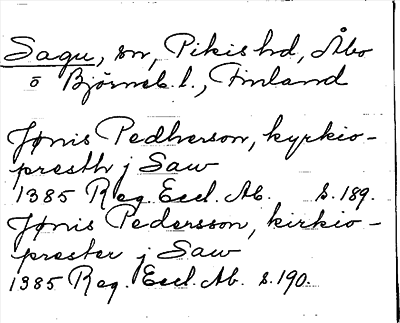 Sagu, sn, Pikis hd, Åbo
o Björneb. l., Finland
Jønis Pedherson, kyrkio-
presth j Saw
1385 Reg. Eccl. Ab. s. 189.
Jønis Pedersson, kirkio-
prester j Saw
1385 Reg. Eccl. Ab. s. 190.